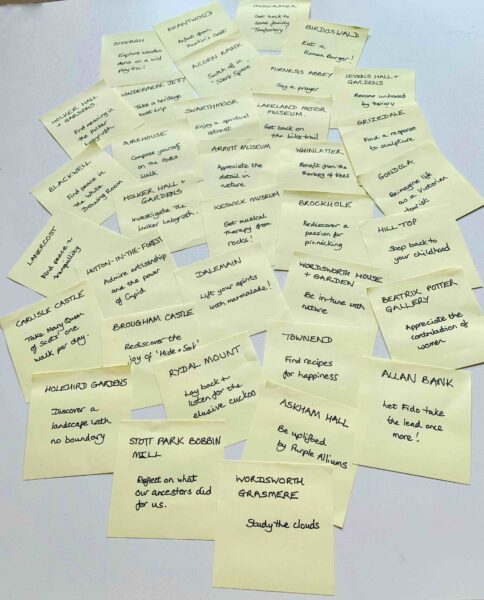 MUNCASTER
Get back to
some family
'Tomfoolery'
BRANTWOOD
Reflect from
Ruskin's Seat
BIRDOSWALD
Eat a
Roman Burger!
SIZERGH
Explore wooden
dens on a wild
play trail
ACORN BANK
Switch off in
FURNESS ABBEY
Say a prayer
LEVENS HALL +
GARDENS
Become unboxed
by topiary
HOLKER HALL
+ GARDENS
Find meaning in
the Holker
Labyrinth
WINDERMERE JETTY
Take a heritage
boat trip
SWARTHMOOR
Enjoy a spiritual
retreat
LAKELAND MOTOR
MUSEUM
Get back on
the bike trail
GRIZEDALE
Find a response
to sculpture
MIREHOUSE
Compose yourself
on the Poets
Walk
ARMITT MUSEUM
Appreciate the
detail in
nature
WHINLATTER
Benefit from the
therapy of trees
GONDOLA
Re-imagine life
as a Victorian
tourist
BLACKWELL
Find peace in
the White
Drawing Room
HOLKER HALL +
GARDENS
Investigate The
Holker Labyrinth.
KESWICK MUSEUM
Get musical
therapy from
rocks!
BROCKHOLE
Rediscover a
passion for
picnicking
HILL TOP
Step back to
your childhood
LANERCOST
Find peace +
tranquillity
HUTTON-IN-THE-FOREST
Admire artisanship
and the power
of Cupid
DALEMAIN
Lift your spirits
with marmalade!
WORDSWORTH HOUSE
+ GARDEN
Be in-tune with
nature
BEATRIX POTTER
GALLERY
Appreciate the
contribution of
women
CARLISLE CASTLE
Take Mary Queen
of Scots' one
walk per day.
BROUGHAM CASTLE
Rediscover the
joy of 'Hide + Seek'
TOWNEND
Find recipes
for happiness
HOLEHIRD GARDENS
Discover a
landscape with
no boundary
RYDAL MOUNT
Lay back +
listen for the
elusive cuckoo
ASKHAM HALL
Be uplifted
by Purple Alliums
ALLAN BANK
Let Fido take
the lead once
more!
STOTT PARK BOBBIN
MILL
Reflect on what
our ancestors did
for us.
WORDSWORTH
GRASMERE
Study the clouds